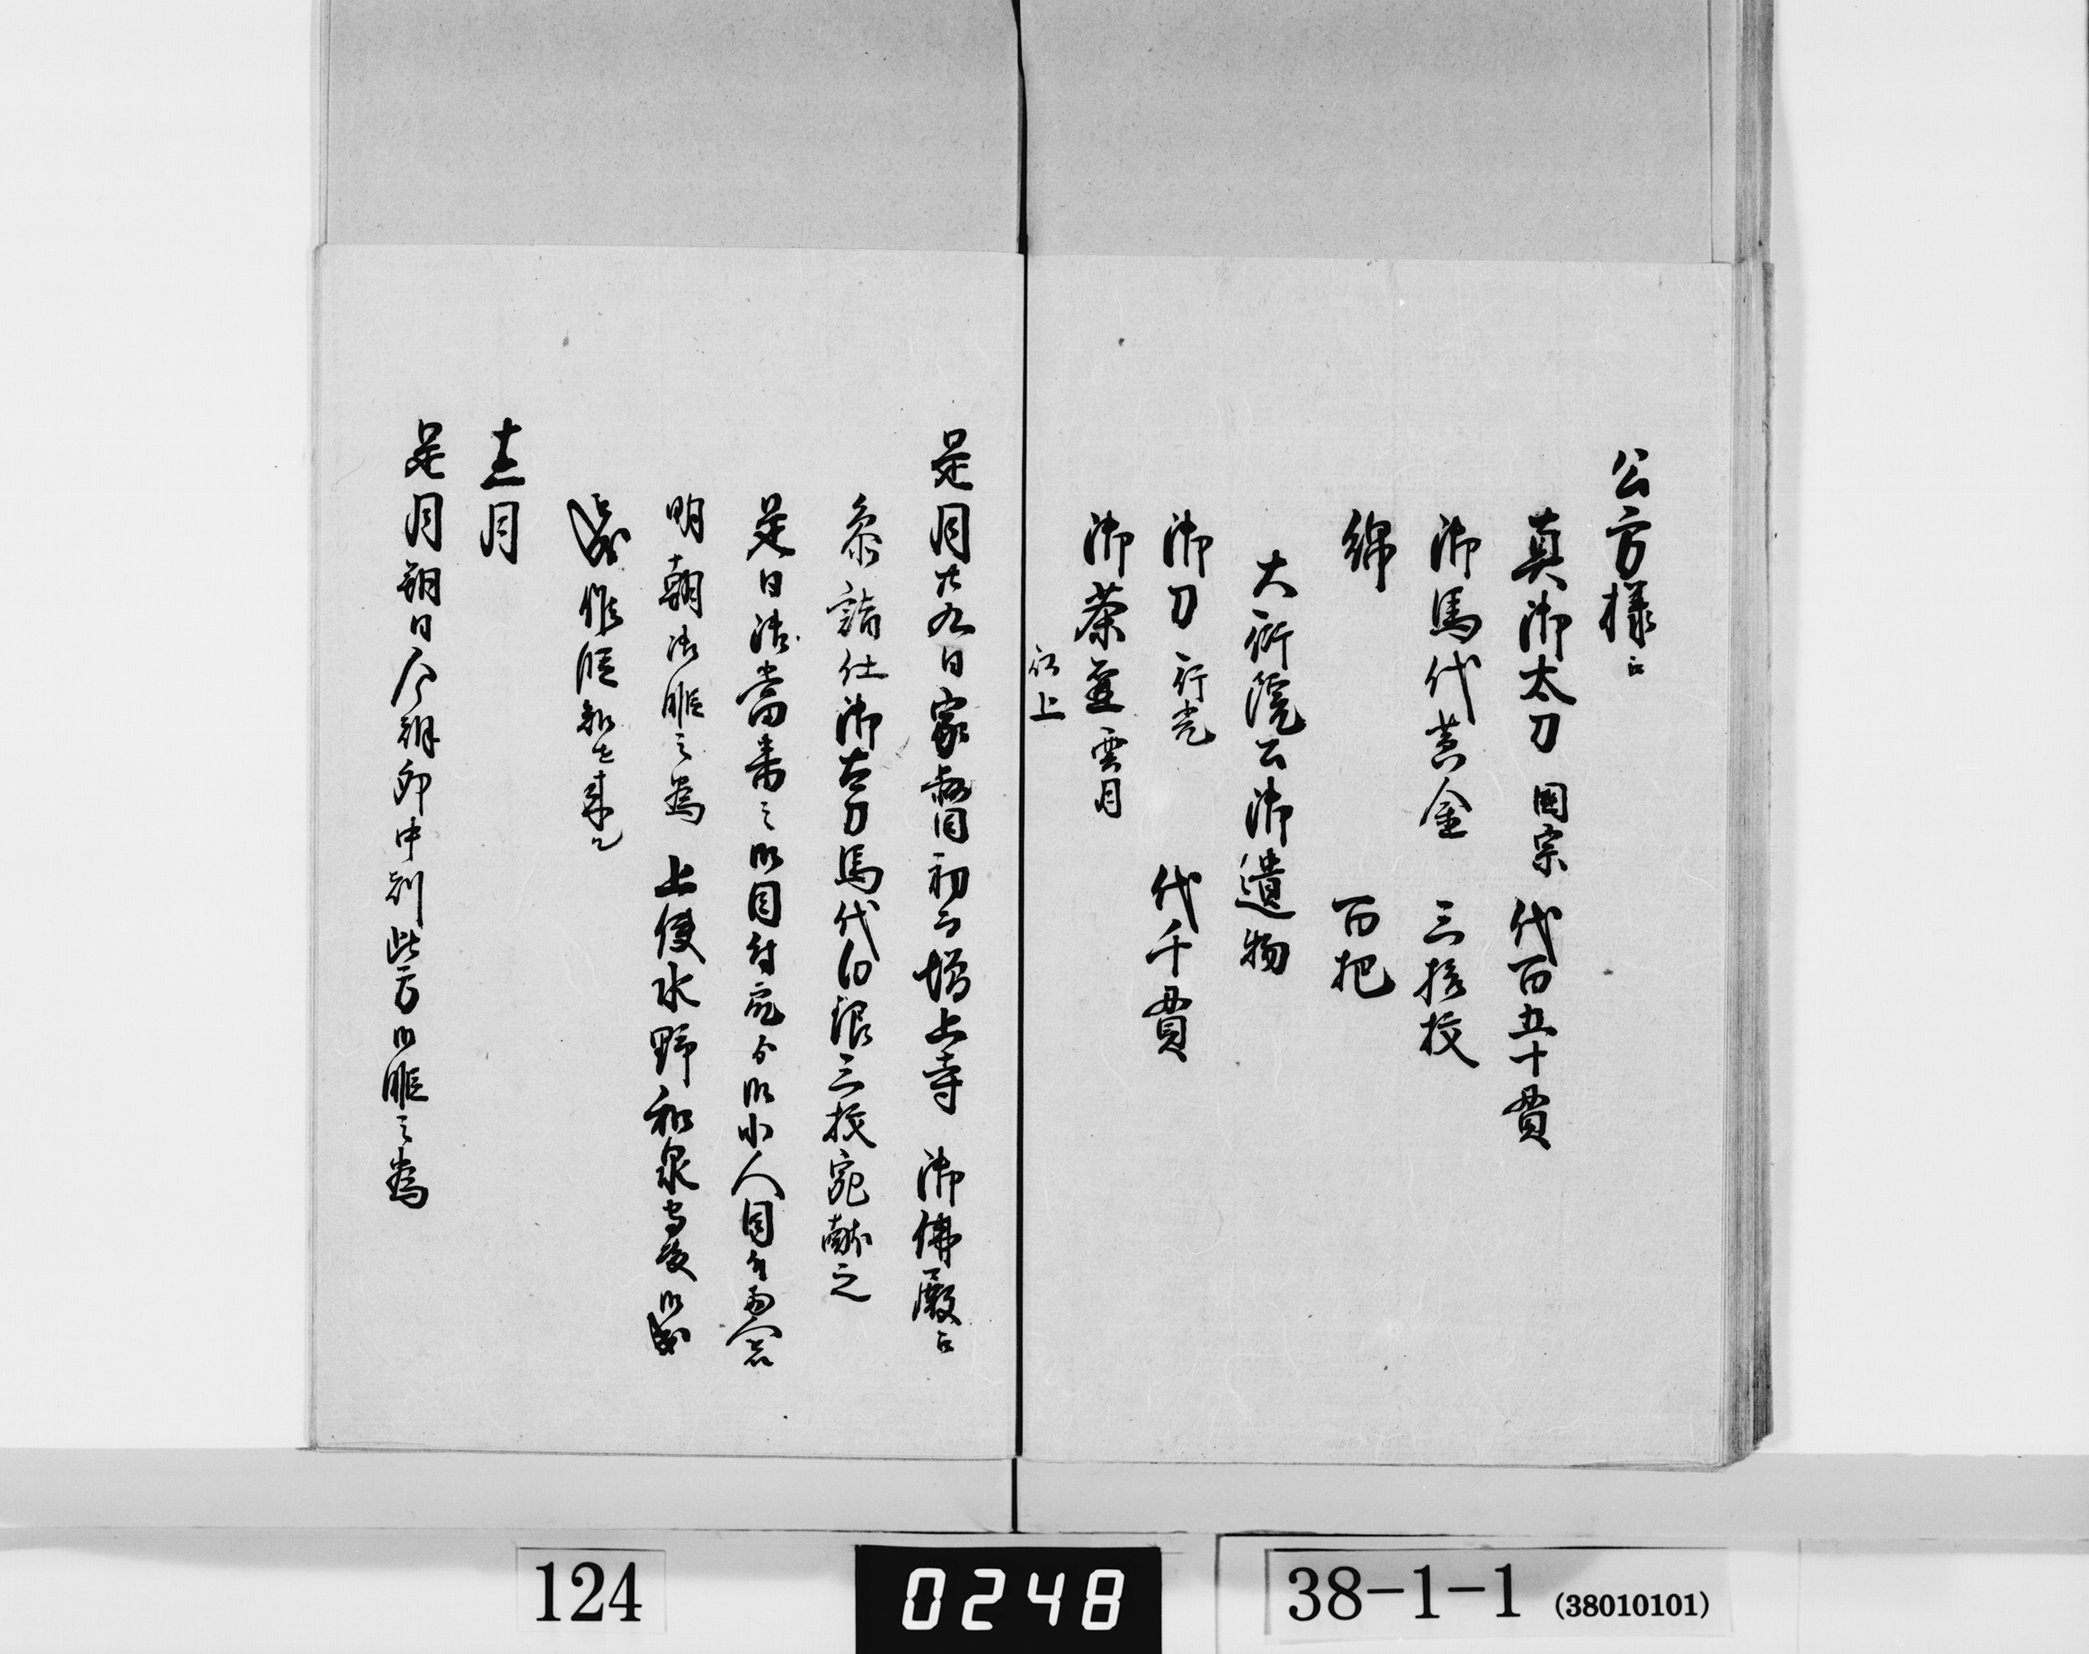 公方様江
真御太刀 国宗 代百五十貫
御馬代黄金 三拾枚
綿 百把
大衍院公御遺物
御刀 行光 代千貫
御茶壺 雲月
被上
是月廿九日家督初而増上寺 御佛殿江
参詣仕御太刀馬代白銀三枚宛献之
是日御当番之御目付 御小人目付
明朝御暇之為 上使水野和泉守殿御越
十二月
是月朔日今朝卯中刻此方御暇之為
124
0248
38-1-1 (38010101)